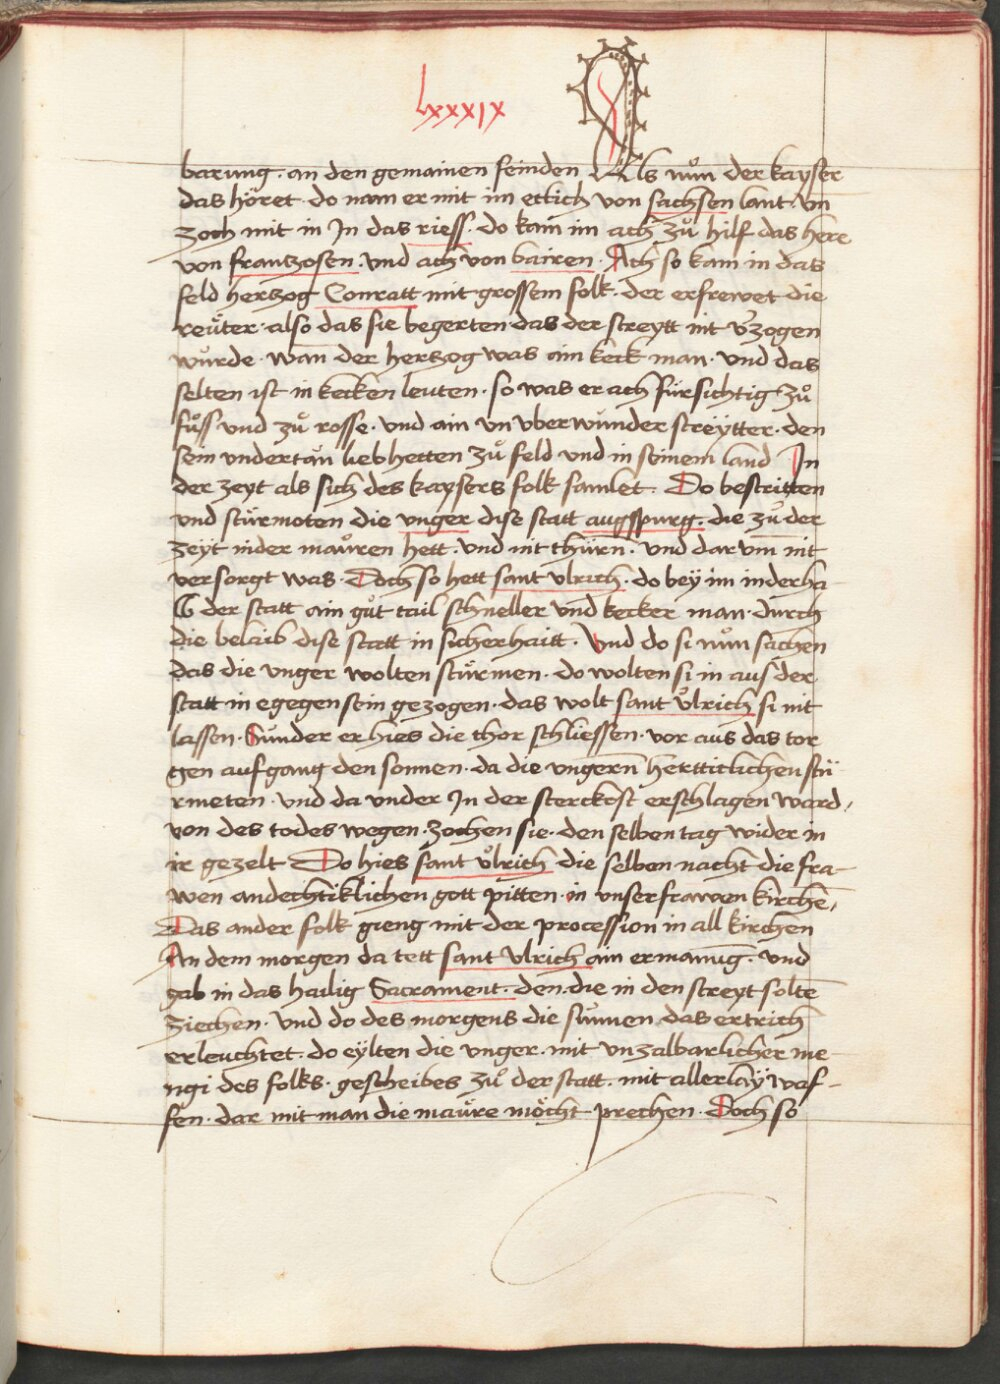 lxxxix
barung · an den gemainen feinden Als nŭn der kayser
das höret · do nam er mit im ettich von sachsen lant · vn̄
zoch mit in In das riess · do kam im ach zů hilf das here
von frantzosen · vnd ach von bairen · Ach so kam in das
feld hertzog Conratt mit grossem folk · der erfrewet die
reu̇ter · also das sie begerten das der streytt nit v̄zogen
wůrde · wan̄ der hertzog was ain kerk man · vnd das
selten ist in kecken leuten · so was er ach fürsichtig zů
fůss vnd zů rosse · vnd ain vn vber wunder streytter · den
sein vndertan̄ lieb hetten zů feld vnd in seinem land In
der zeyt als sich des kaysers folk samlet · Do bestritten
vnd stürmoten die vnger dise statt augspurg · die zů der
zeyt nider mauren hett · vnd nit thürn · vnd dar vm̄ nit
versorgt was · Doch so hett sant vlrich · do bey im inderha
lb der statt ain gůt tail schneller vnd kecker man · durch
die belaib dise statt in sicherhaitt · Vnd do si nŭn sachen
das die vnger wolten stürmen · do wolten si in aus der
statt in egegen sein gezogen · das wolt sant vͦlrich si nit
lassen · Sunder er hies die thor schliessen · vor aus das tor
gen aufgang der sonnen · da die vngern̄ herttiklichen stü-
rmeten · vnd da vnder In der sterckost erschlagen ward,
von des todes wegen · zochen sie · den selben tag wider in
ir gezelt Do hies sant vͦlrich die selben nacht die fra-
wen andechtiklichen gott pitten · in vnser frawen kirchē,
Das ander folk gieng mit der procession in all kirchen
An dem morgen da tett sant Vlrich ain ermanūg · vnd
gab in das hailig Sacrament · den · die in den streyt soltē
ziechen · vnd do des morgens die sunnen das ertrich
erleuchtet · do eylten die vnger · mit vnzalbarlicher me-
ngi des folks · gescheibes zů der statt · mit allerlaÿ waf-
fen · dar mit man die maure möcht prechen · Doch so